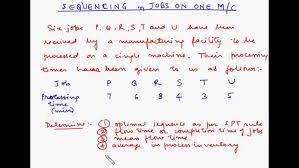 SEQUENCING n JOBS ON ONE M/C
Six jobs P, Q, R, S, T and U have been
received by a manufacturing facility to be
processed on a single machine. Their processing
times have been given to us as follows:
Job P Q R S T U
Processing time (min) 7 6 8 4 3 5
Determine: ① optimal sequence as per SPT rule
② flow time or completion time of jobs
③ mean flow time
④ average in process inventory